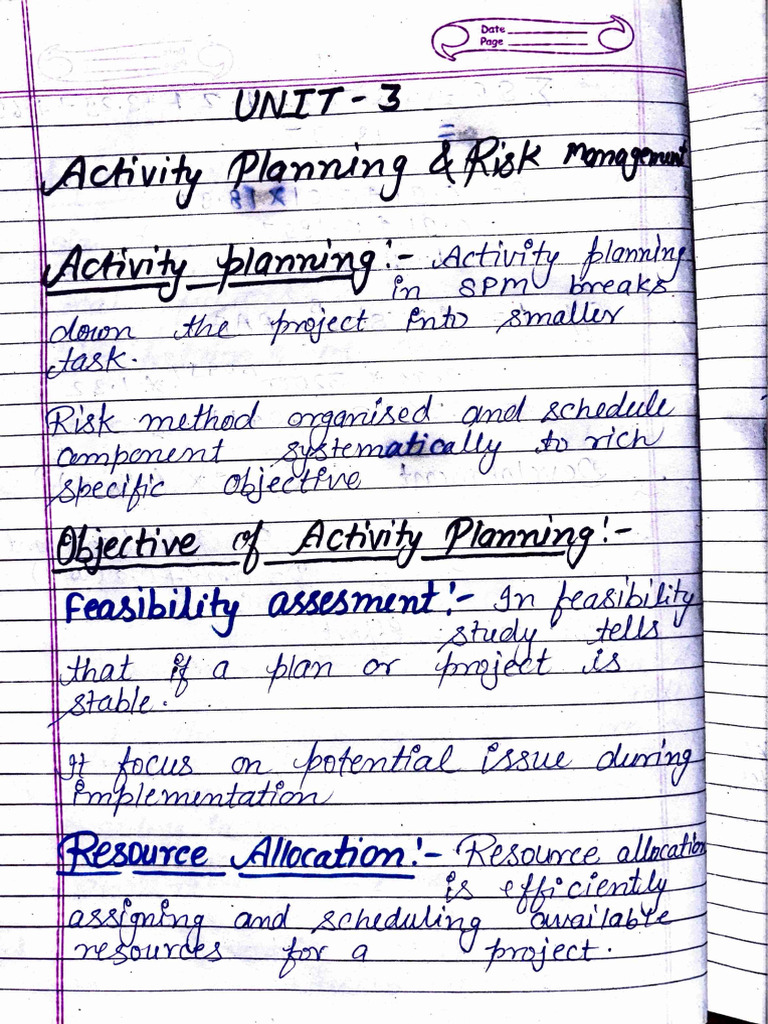 Date
Page
UNIT - 3
Activity Planning & Risk Management
Activity planning :- Activity planning
in SPM breaks
down the project into smaller
task.
Risk method organised and schedule
component systematically to rich
specific objective
Objective of Activity Planning :-
Feasibility assesment :- In feasibility
study tells
that if a plan or project is
stable.
It focus on potential issue during
implementation
Resource Allocation :- Resource allocation
is efficiently
assigning and scheduling available
resources for a project.